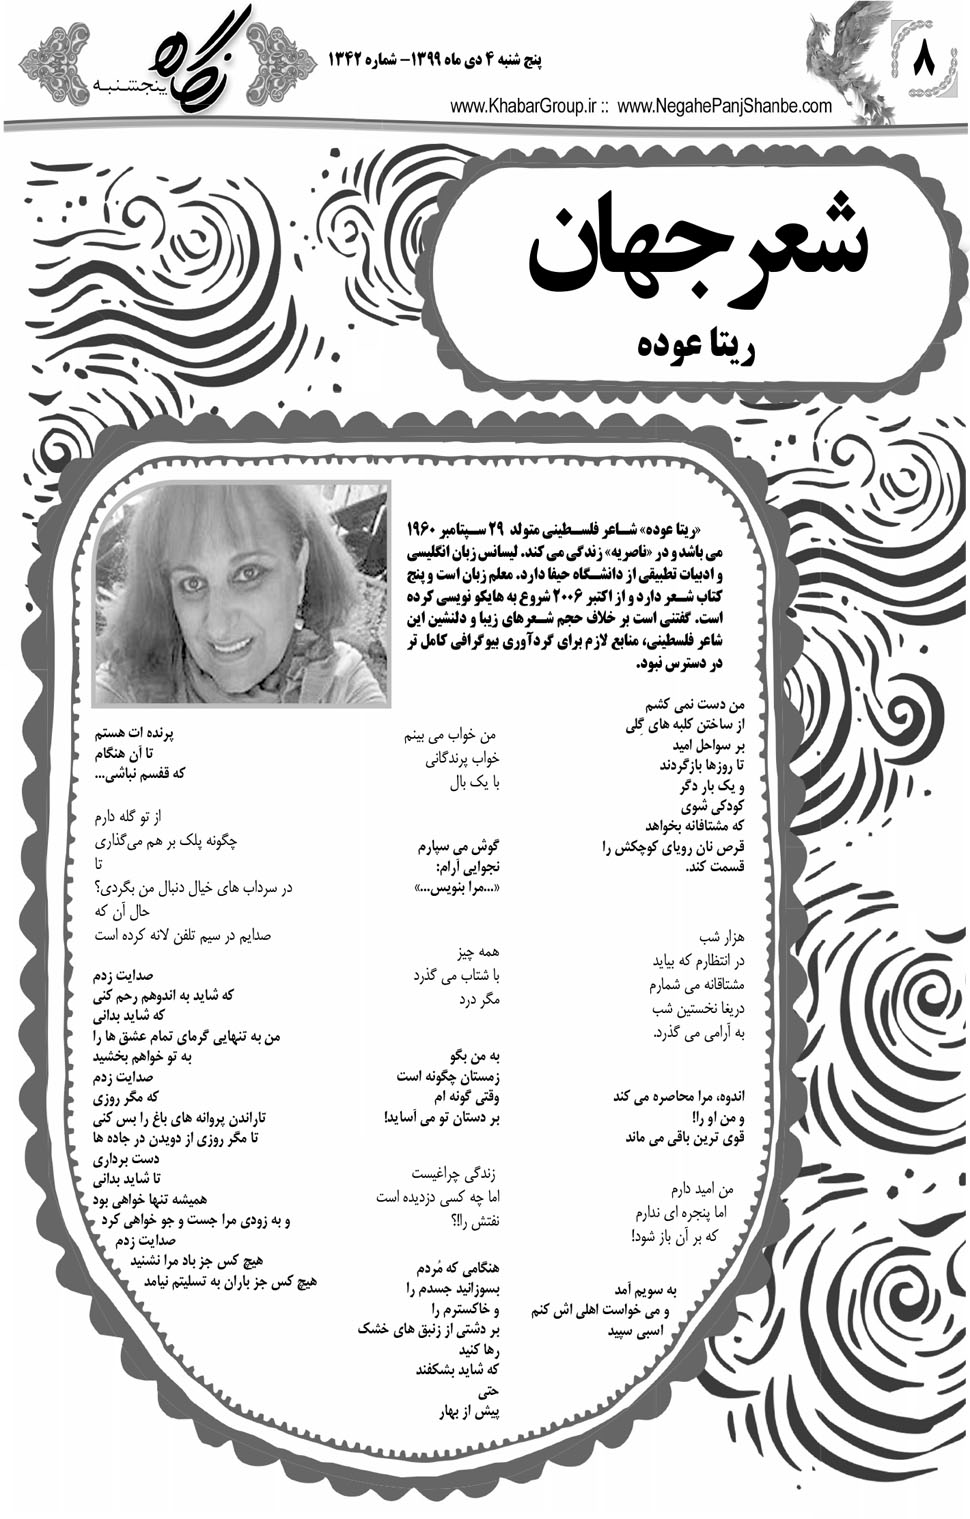 ۸
پنج شنبه ۴ دی ماه ۱۳۹۹- شماره ۱۳۴۲
نگاه
پنجشنبه
www.KhabarGroup.ir :: www.NegahePanjShanbe.com
شعر جهان
ریتا عوده
«ریتا عوده» شاعر فلسطینی متولد ۲۹ سپتامبر ۱۹۶۰
می باشد و در «ناصریه» زندگی می کند. لیسانس زبان انگلیسی
و ادبیات تطبیقی از دانشگاه حیفا دارد. معلم زبان است و پنج
کتاب شعر دارد و از اکتبر ۲۰۰۶ شروع به هایکو نویسی کرده
است. گفتنی است بر خلاف حجم شعرهای زیبا و دلنشین این
شاعر فلسطینی، منابع لازم برای گردآوری بیوگرافی کامل تر
در دسترس نبود.
من دست نمی کشم
از ساختن کلبه های گِلی
بر سواحل امید
تا روزها بازگردند
و یک بار دگر
کودکی شوی
که مشتاقانه بخواهد
قرص نان رویای کوچکش را
قسمت کند.
هزار شب
در انتظارم که بیاید
مشتاقانه می شمارم
دریغا نخستین شب
به آرامی می گذرد.
اندوه، مرا محاصره می کند
و من او را!
قوی ترین باقی می ماند
من امید دارم
اما پنجره ای ندارم
که بر آن باز شود!
به سویم آمد
و می خواست اهلی اش کنم
اسبی سپید
من خواب می بینم
خواب پرندگانی
با یک بال
گوش می سپارم
نجوایی آرام:
«...مرا بنویس...»
همه چیز
با شتاب می گذرد
مگر درد
به من بگو
زمستان چگونه است
وقتی گونه ام
بر دستان تو می آساید!
زندگی چراغیست
اما چه کسی دزدیده است
نفتش را!؟
هنگامی که مُردم
بسوزانید جسدم را
و خاکسترم را
بر دشتی از زنبق های خشک
رها کنید
که شاید بشکفند
حتی
پیش از بهار
پرنده ات هستم
تا آن هنگام
که قفسم نباشی...
از تو گله دارم
چگونه پلک بر هم می‌گذاری
تا
در سرداب های خیال دنبال من بگردی؟
حال آن که
صدایم در سیم تلفن لانه کرده است
صدایت زدم
که شاید به اندوهم رحم کنی
که شاید بدانی
من به تنهایی گرمای تمام عشق ها را
به تو خواهم بخشید
صدایت زدم
که مگر روزی
تاراندن پروانه های باغ را بس کنی
تا مگر روزی از دویدن در جاده ها
دست برداری
تا شاید بدانی
همیشه تنها خواهی بود
و به زودی مرا جست و جو خواهی کرد
صدایت زدم
هیچ کس جز باد مرا نشنید
هیچ کس جز باران به تسلیتم نیامد